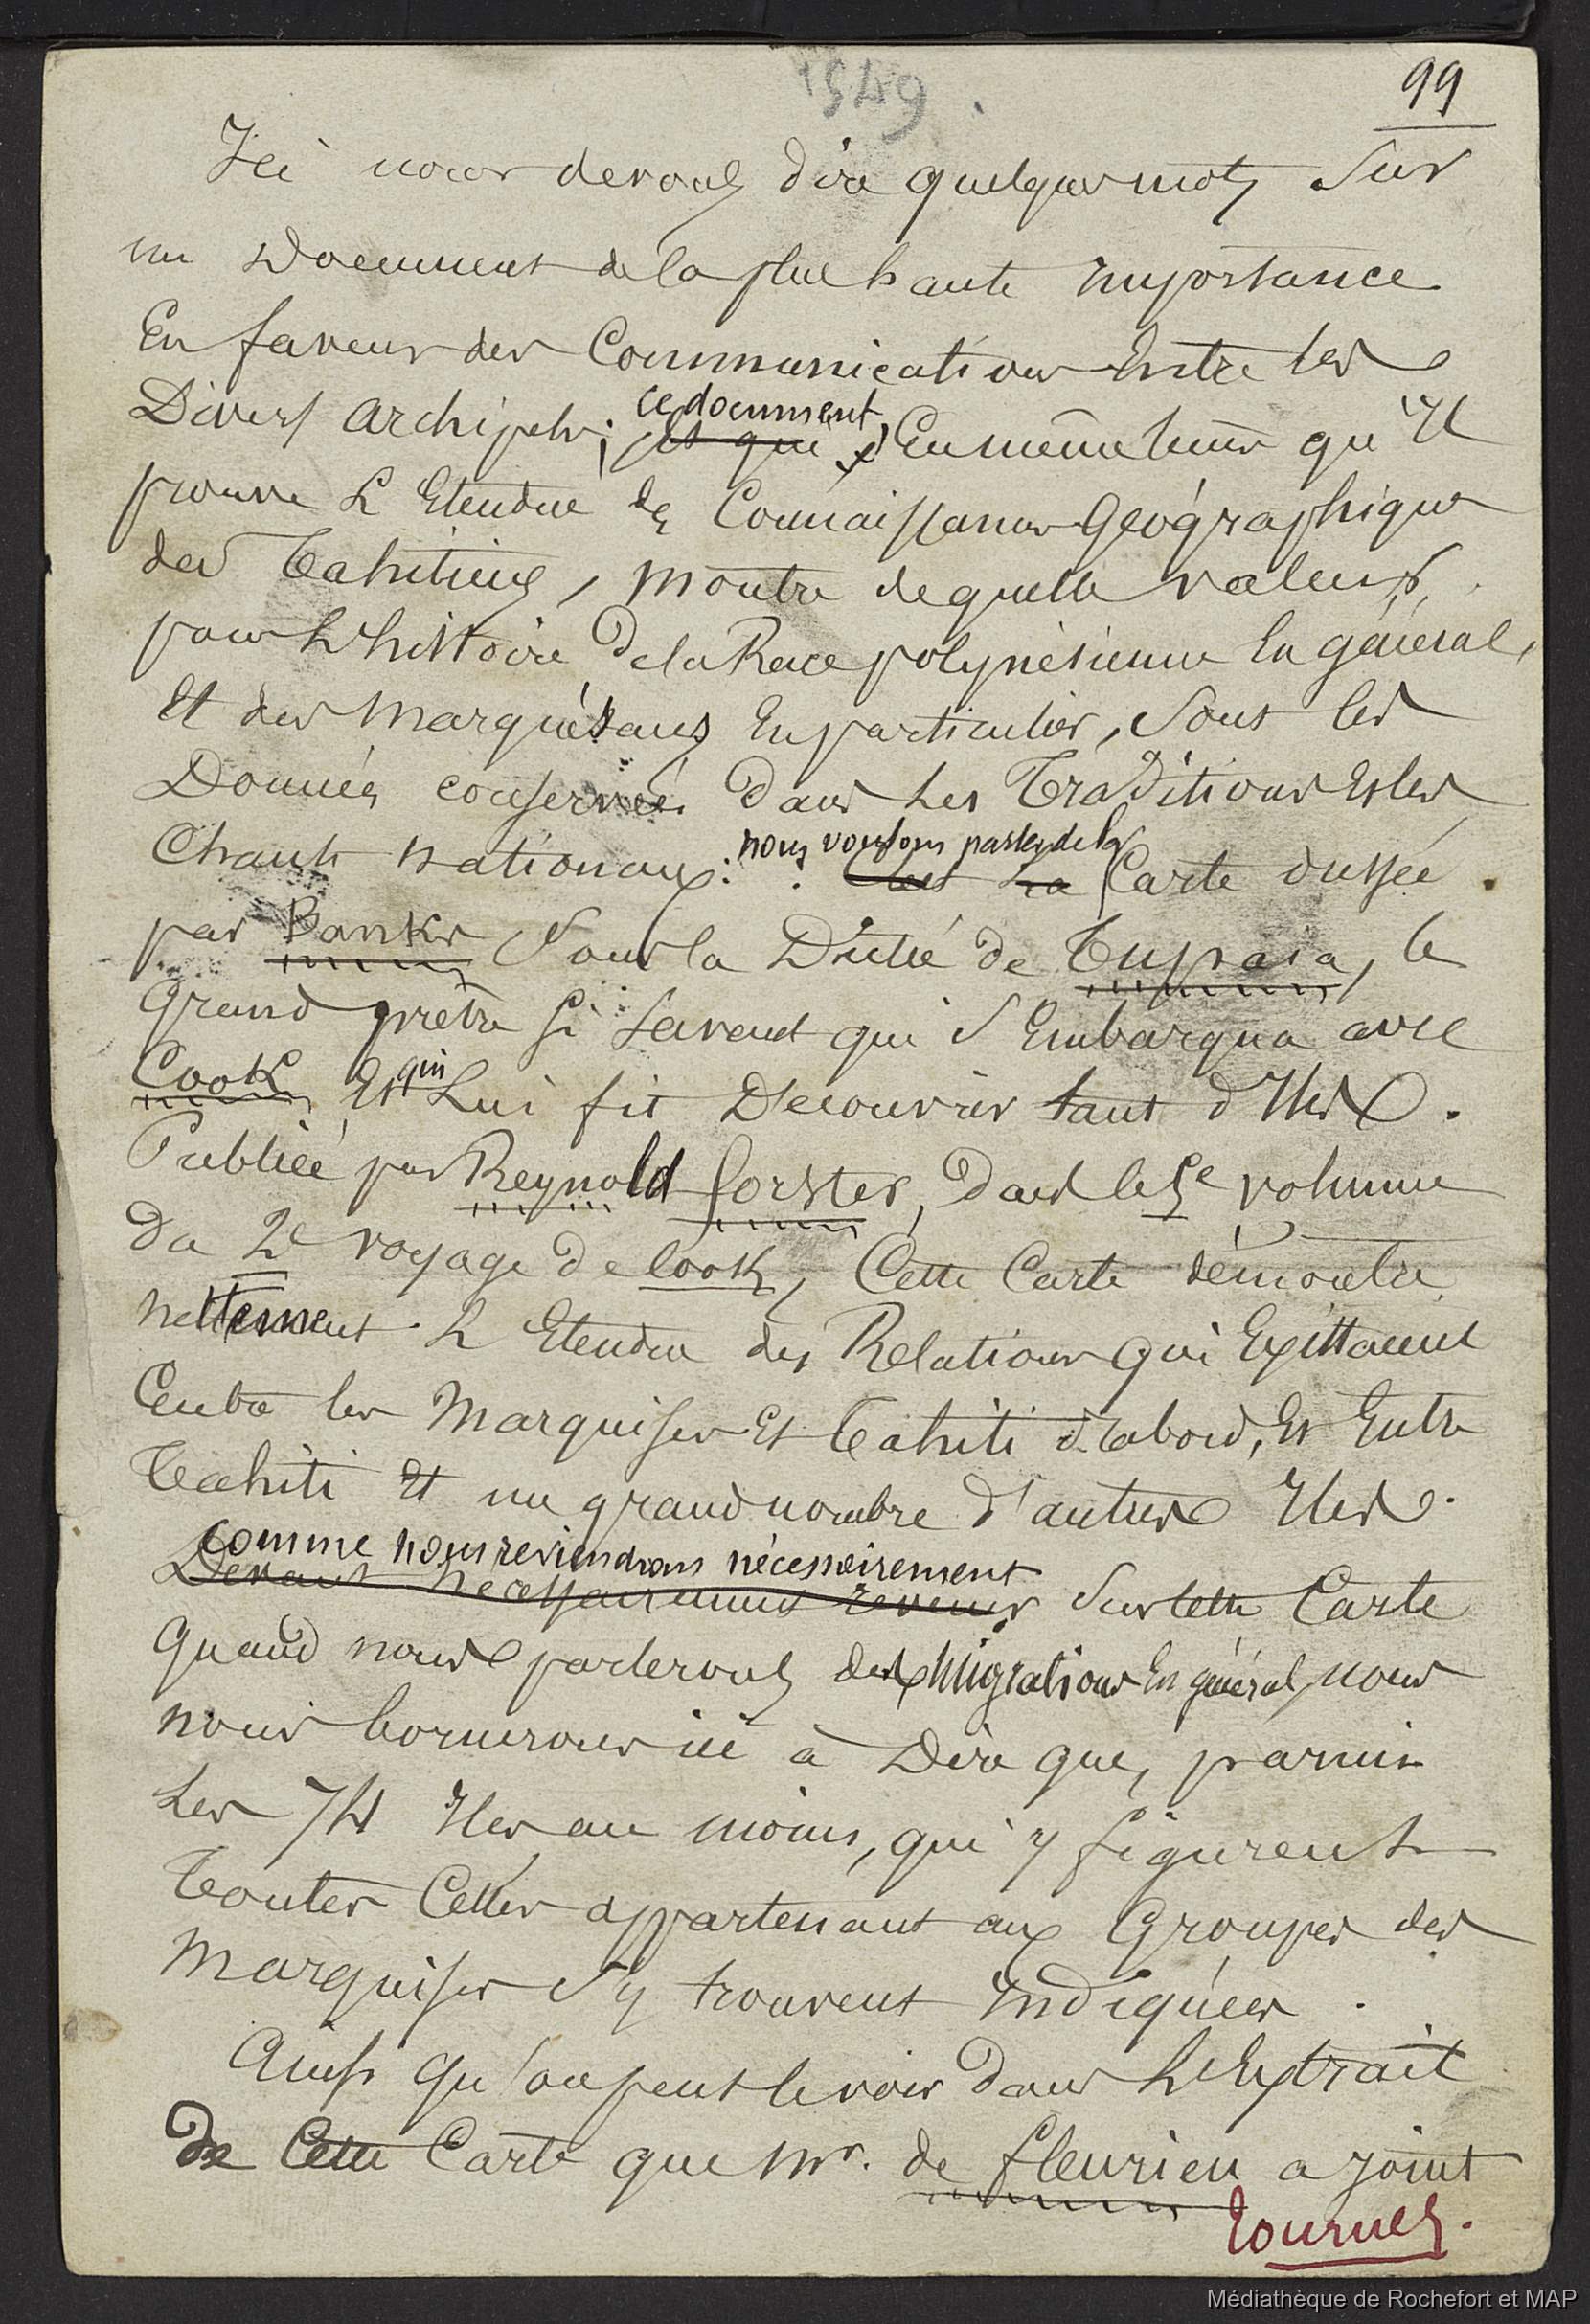 1549.
99
Ici nous devons dire quelques mots Sur
un Document de la plus haute Importance
En faveur des Communications Entre les
ce document,
Divers archipels; et qui, En même tems qu'Il
prouve L'Etendue des Connaissances Géographiques
des Tahitiens, montre de quelle valeur,
pour L'histoire de la Race polynésienne En général,
Et des Marquésans En particulier, Sont les
Données conservées dans Les Traditions Et les
nous voulons parler de la
Chants nationaux: C'est La Carte dressée
par Banks Sous la Dictée de Tupaia, le
Grand prêtre Si Savant qui S'Embarqua avec
qui
Cook, Et Lui fit Découvrir tant d'Iles.
Publiée par Reynold forster, dans le 5e volume
Du 2e voyage de Cook, Cette Carte démontre
nettement L'Etendue des Relations qui Existaient
Entre les Marquises Et Tahiti d'abord, Et Entre
Tahiti Et un grand nombre d'autres Iles.
comme nous reviendrons nécessairement
Devant nécessairement revenir Sur cette Carte
Quand nous parlerons des Migrations En général, nous
nous bornerons ici à Dire que, parmi
Les 74 Iles au moins, qui y figurent
Toutes Celles appartenant aux Groupes des
Marquises S'y trouvent Indiquées.
Ainsi qu'on peut le voir dans L'Extrait
de Cette Carte que Mr. de fleurieu a joint
tournez.
Médiathèque de Rochefort et MAP